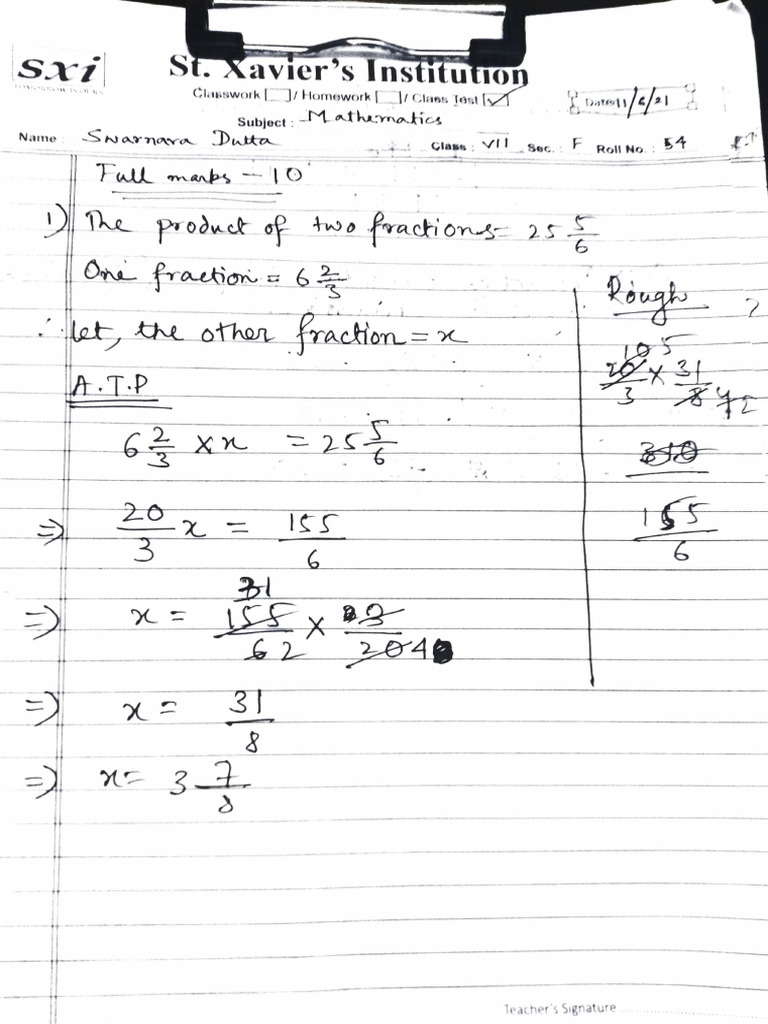 sxi
St. Xavier's Institution
Classwork [ ] / Homework [ ] / Class Test [✓]
Date: 11/6/21
Subject : Mathematics
Name : Swarnava Dutta Class : VII Sec. : F Roll No. : 54
Full marks - 10
1) The product of two fractions = 25 5/6
One fraction = 6 2/3
∴ let, the other fraction = x
A.T.P
6 2/3 × x = 25 5/6
⇒ 20/3 x = 155/6
31
⇒ x = 155/6 2 × 3/20 4
⇒ x = 31/8
⇒ x = 3 7/8
Rough
10 5
20/3 × 31/8 4 2
310
155/6
Teacher's Signature